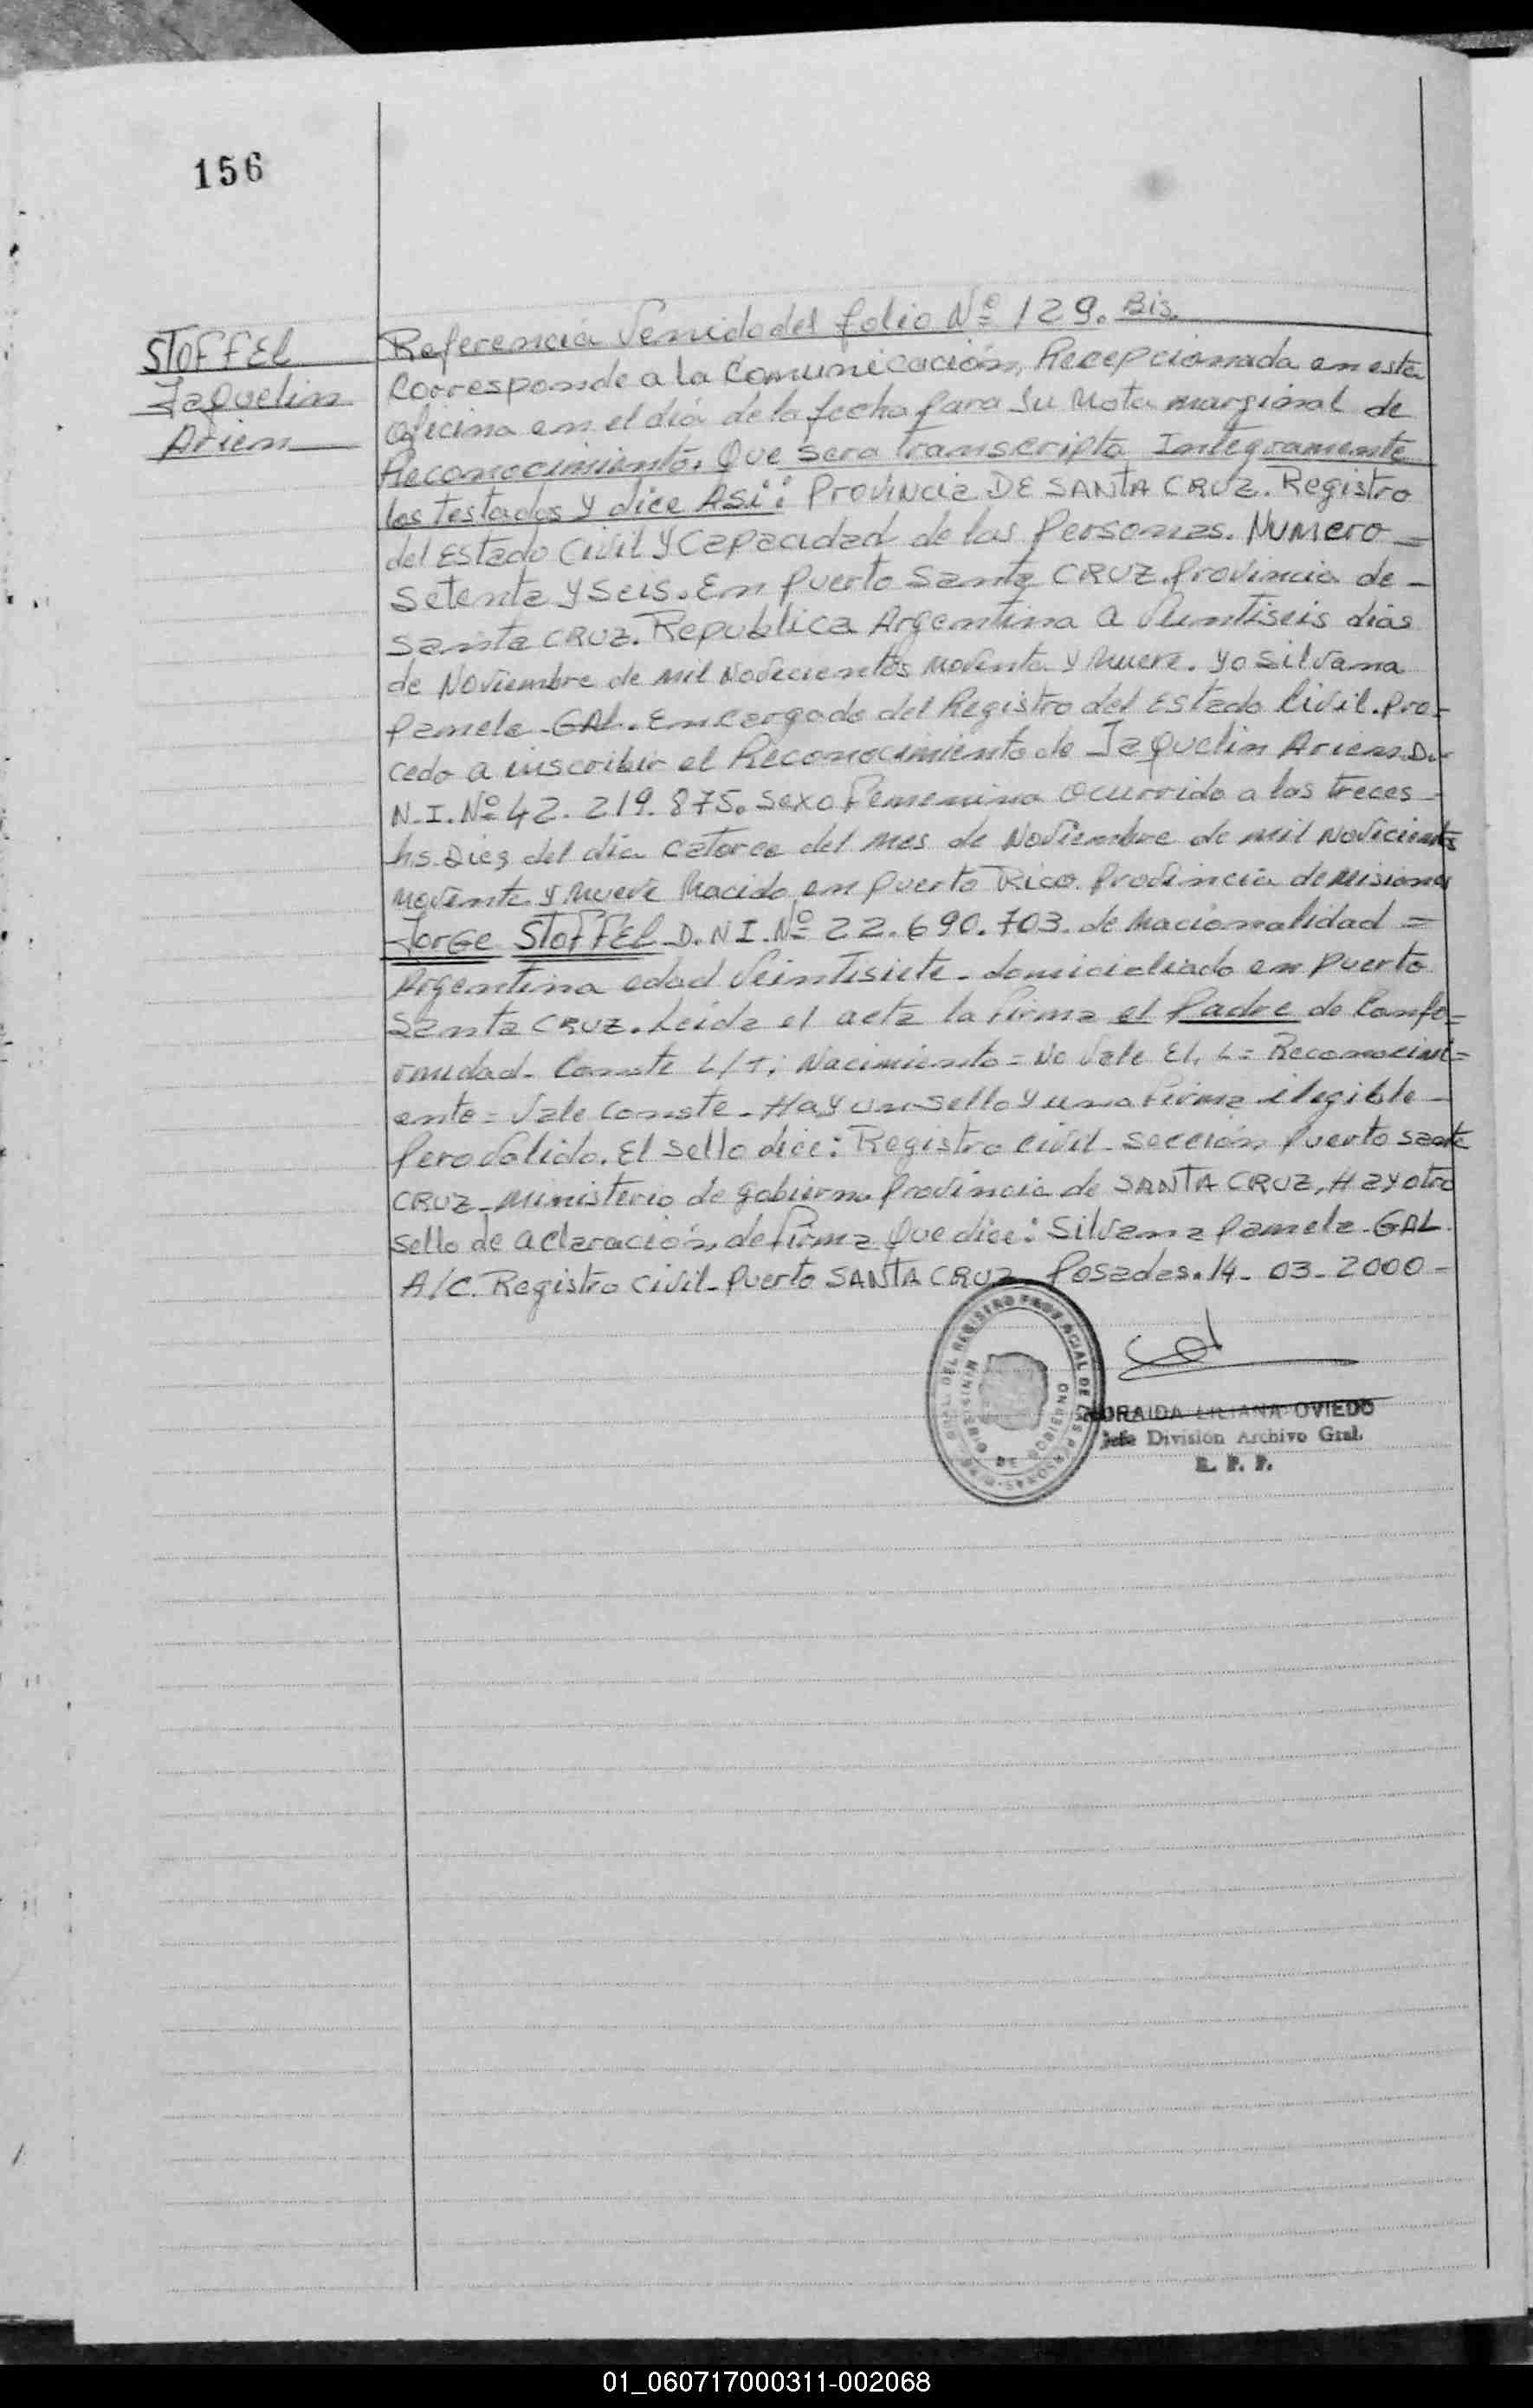 156
STOFFEL
Jaquelin
Arien
Referencia Venido del folio Nº 129. Bis.
Corresponde a la Comunicación, Recepcionada en esta
oficina en el día de la fecha para su Nota marginal de
Reconocimiento. Que sera transcripta Integramente
los testados y dice ASi: Provincia DE SANTA CRUZ. Registro
del Estado Civil y Capacidad de las Personas. NUMERO =
Setenta y Seis. En Puerto Santa CRUZ. Provincia de -
Santa CRUZ. Republica Argentina a Vuntiseis dias
de Noviembre de mil Novecientos noventa y nueve. yo Silvana
Pamela - GAL. Encargado del Registro del Estado Civil. Pro-
cedo a inscribir el Reconocimiento de Jaquelin Arien. D.
N. I. Nº 42. 219. 875. Sexo Femenino Ocurrido a las treces =
hs. Diez del día catorce del mes de Noviembre de mil Noviciento
noventa y nueve Nacido en Puerto Rico. Provincia de Misiones
Jorge STOFFEL D. N I. Nº 22. 690. 703. de Nacionalidad =
Argentina edad Veintisiete - domicieliado en Puerto
Santa CRUZ. Leida el acta la firma el Padre de Confo=
rmidad. Conste L/T: Nacimiento = No Vale El. L = Reconocimi=
ento = Vale Conste - Hay un sello y una firma ilegible -
Pero Valido. El sello dice: Registro civil - Sección Puerto Santa
CRUZ - Ministerio de Gobierno Provincia de SANTA CRUZ, Hay otro
sello de aclaración de firma Que dice: Silvana Pamela - GAL.
A/C. Registro Civil - Puerto SANTA CRUZ Posadas. 14 - 03 - 2000 -
DEL REGISTRO PROVINCIAL DE LAS PERSONAS
MINISTERIO DE GOBIERNO
ZORAIDA LILIANA OVIEDO
Jefe División Archivo Gral.
R. P. P.
01_060717000311-002068